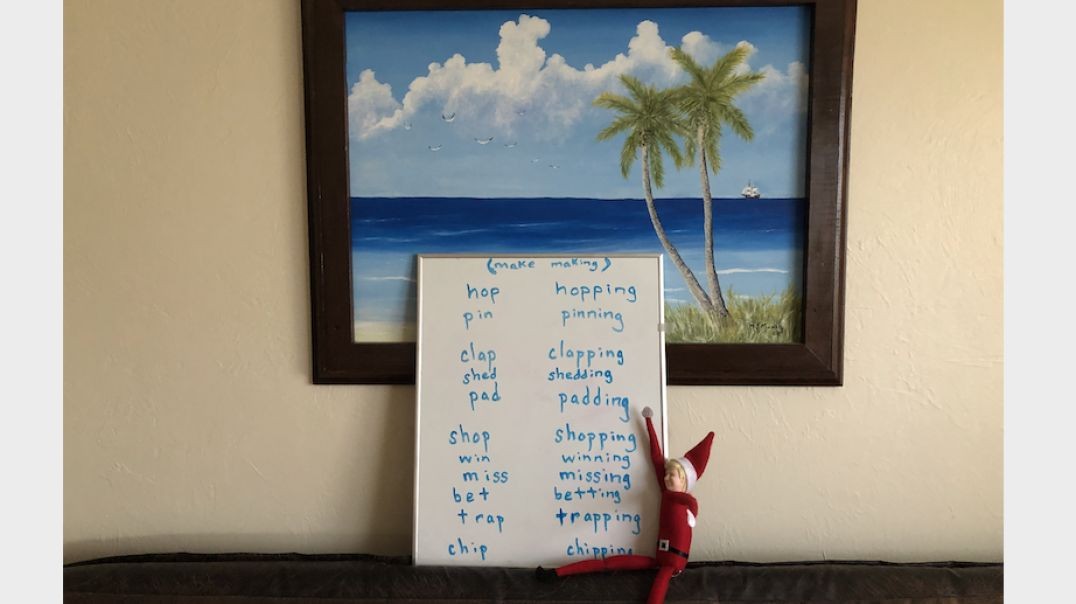 (make making)
hop hopping
pin pinning
clap clapping
shed shedding
pad padding
shop shopping
win winning
miss missing
bet betting
trap trapping
chip chipping